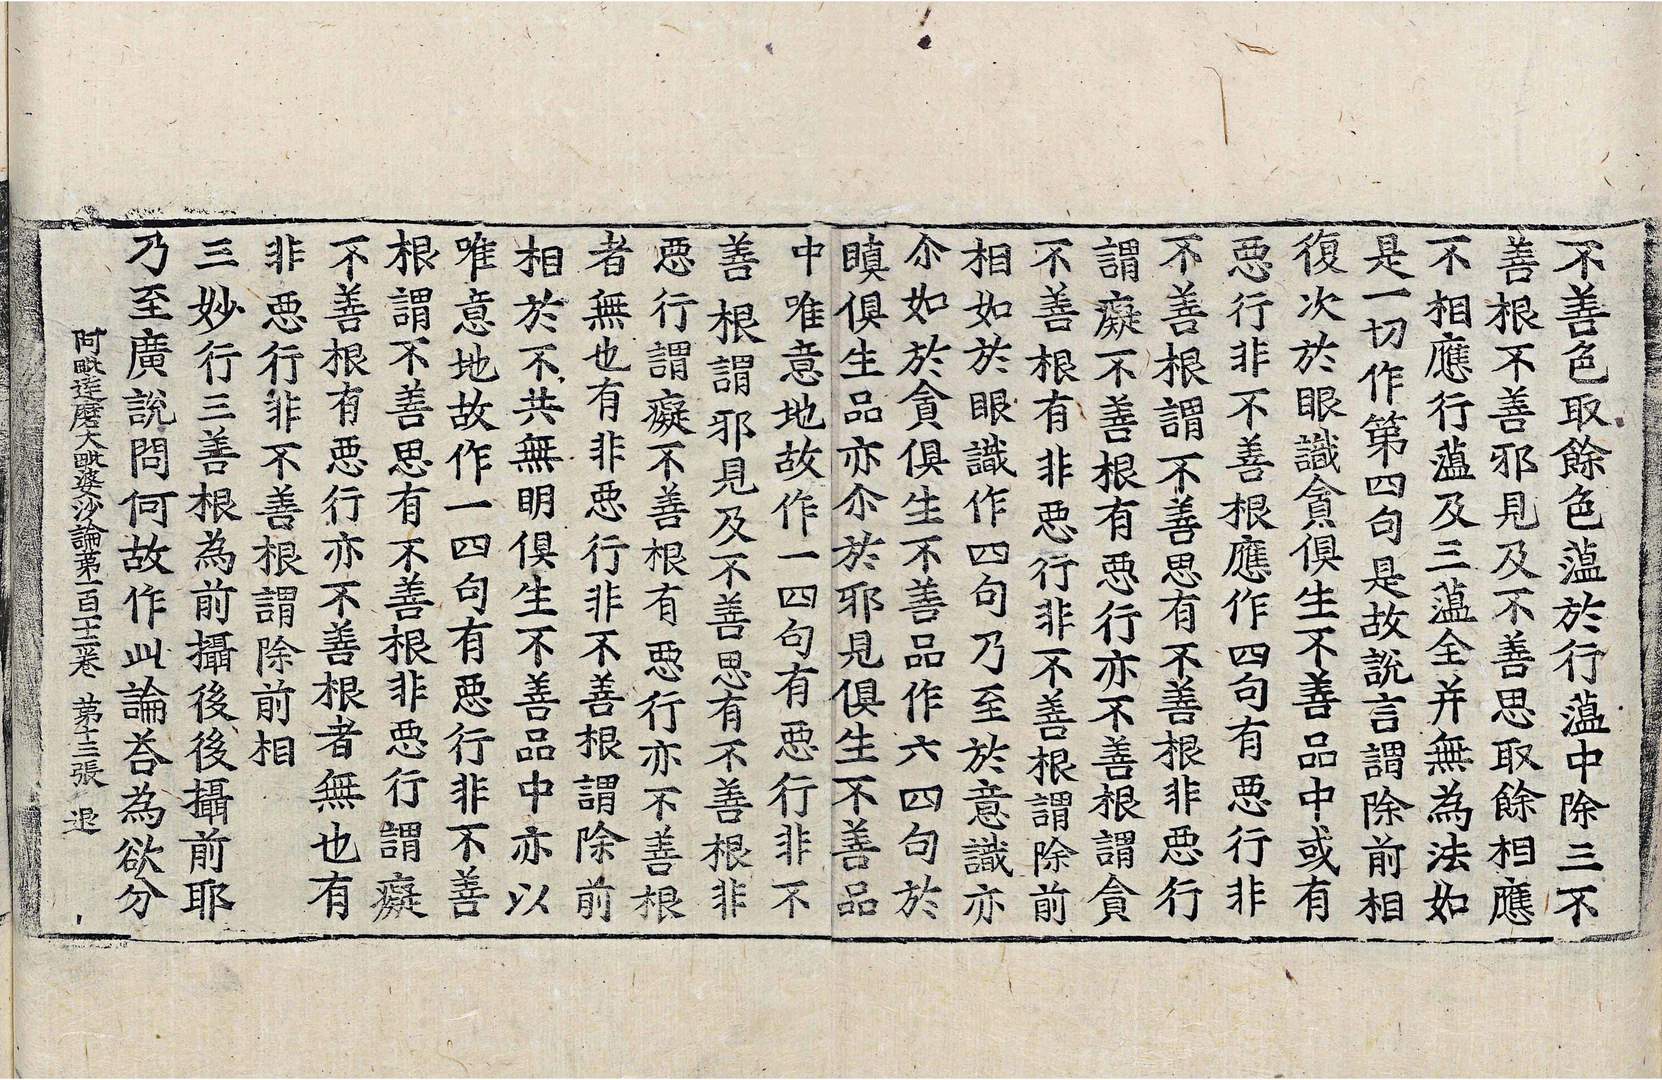 不善色取餘色薀於行薀中除三不
善根不善邪見及不善思取餘相應
不相應行薀及三薀全并無為法如
是一切作第四句是故說言謂除前相
復次於眼識貪俱生不善品中或有
惡行非不善根應作四句有惡行非
不善根謂不善思有不善根非惡行
謂癡不善根有惡行亦不善根謂貪
不善根有非惡行非不善根謂除前
相如於眼識作四句乃至於意識亦
尒如於貪俱生不善品作六四句於
瞋俱生品亦尒於邪見俱生不善品
中唯意地故作一四句有惡行非不
善根謂邪見及不善思有不善根非
惡行謂癡不善根有惡行亦不善根
者無也有非惡行非不善根謂除前
相於不共無明俱生不善品中亦以
唯意地故作一四句有惡行非不善
根謂不善思有不善根非惡行謂癡
不善根有惡行亦不善根者無也有
非惡行非不善根謂除前相
三妙行三善根為前攝後後攝前耶
乃至廣說問何故作此論荅為欲分
阿毗達磨大毗婆沙論第一百十二卷 第十三張 退